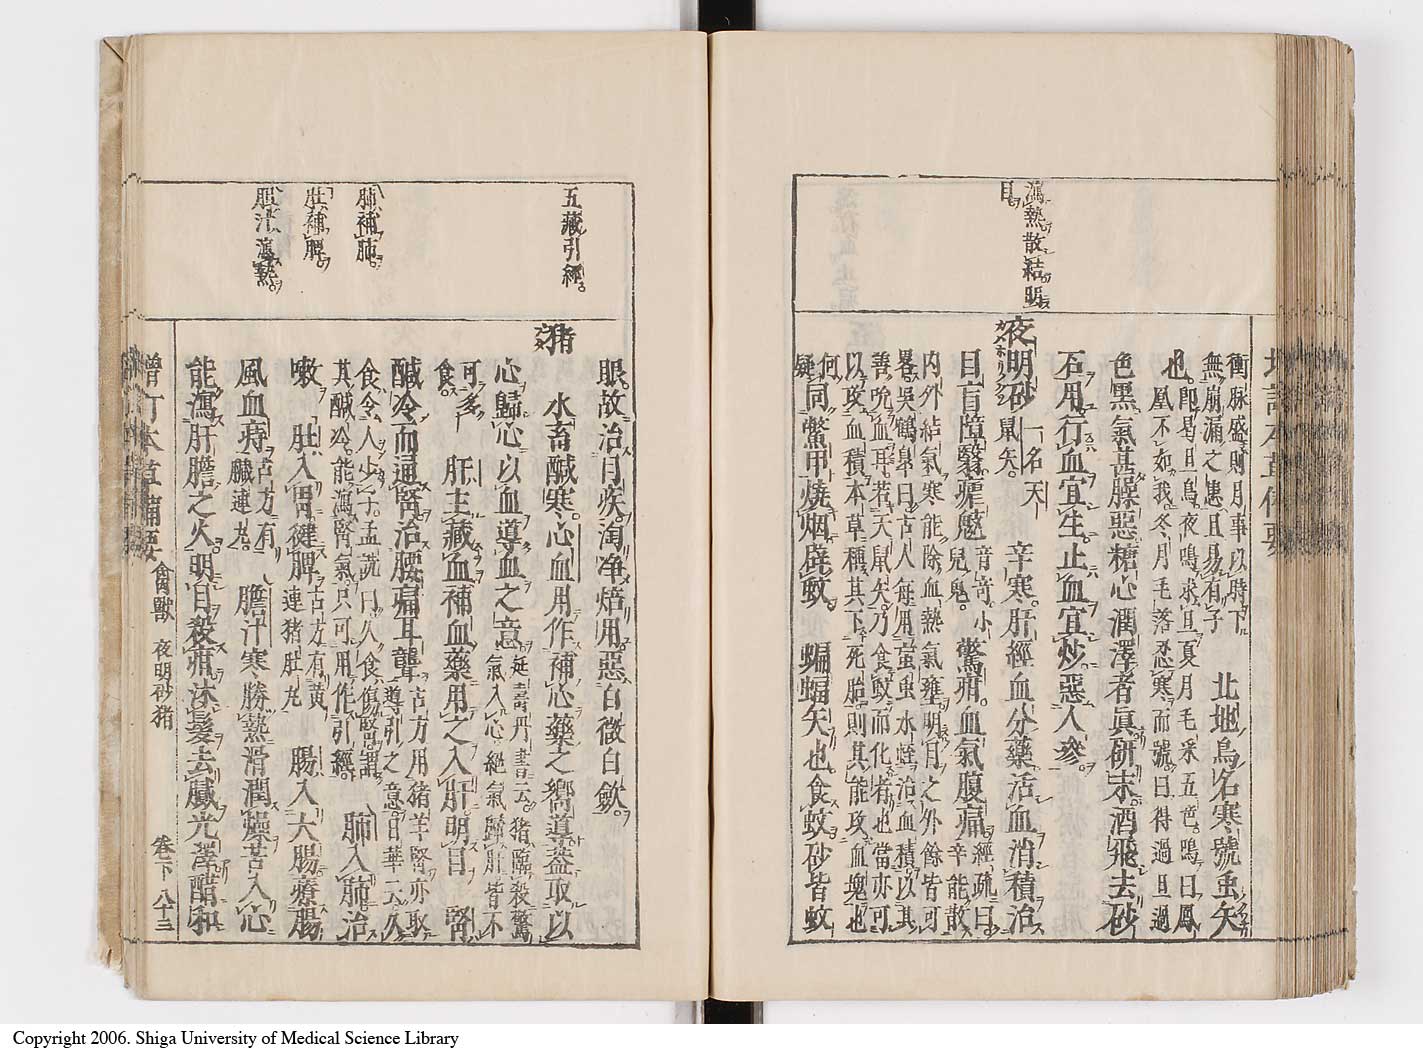 瀉熱散結明
目
衝脉盛則月事以時下
無崩漏之患且易有子
北地鳥名寒號虫矢
也卽曷旦鳥夜鳴求旦夏月毛采五色鳴曰鳳
凰不如我冬月毛落忍寒而號曰得過且過
色黑氣甚臊惡糖心潤澤者眞硏末酒飛去砂
石用行血宜生止血宜炒惡人參
夜明砂 一名天鼠矢 辛寒肝經血分藥活血消積治
目盲障翳瘧魃 音奇小兒鬼 驚疳血氣腹痛 經疏曰辛能散
內外結氣寒能除血熱氣壅明月之外餘皆可
畧吳鶴皐曰古人每用䖟虫水蛭治血積以其
善吮血耳若天鼠矢乃食蚊而化者也當亦可
以攻血積本草稱其下死胎則其能攻血塊也
何疑 同鱉甲燒烟辟蚊 蝙蝠矢也食蚊砂皆蚊
五藏引經
肺補肺
肚補脾
膽汁瀉熱
眼故治目疾淘淨焙用惡白薇白斂
猪 水畜鹹寒心血用作補心藥之嚮導葢取以
心歸心以血導血之意 延壽丹書云猪臨殺驚氣入心絕氣歸肝皆不
可多食 肝主藏血補血藥用之入肝明目 腎
鹹冷而通腎治腰痛耳聾 古方用猪羊腎亦取導引之意日華云久
食令人少子孟詵曰久食傷腎謂
其鹹冷能瀉腎氣只可用作引經 肺入肺治
嗽 肚入胃健脾 古方有黃連猪肚丸 腸入大腸療腸
風血痔 古方有臟連丸 膽汁寒勝熱滑潤燥苦入心
能瀉肝膽之火明目殺疳沐髮去膩光澤醋和
增訂本草備要 禽獸 夜明砂 猪 卷下 八十三